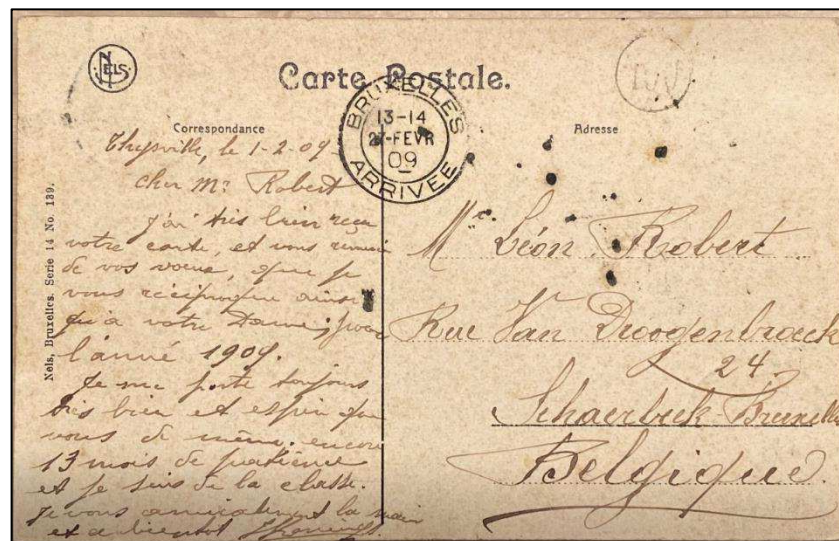 NELS
Carte Postale.
BRUXELLES
13-14
27-FEVR
09
ARRIVEE
Correspondance
Adresse
Nels, Bruxelles. Serie 14 No. 139.
Thysville, le 1-2-09
cher Mr Robert
J'ai très bien reçu
votre carte, et vous remercie
de vos voeux, que je
vous réciproque ainsi
qu'à votre Dame, pour
l'année 1909.
Je me porte toujours
très bien et espère que
vous de même. encore
13 mois de patience
et je suis de la classe.
Je vous amicalement la main
et a bientot
Mr. Léon Robert
Rue Van Droogenbroeck
24
Schaerbeek-Bruxelles
Belgique